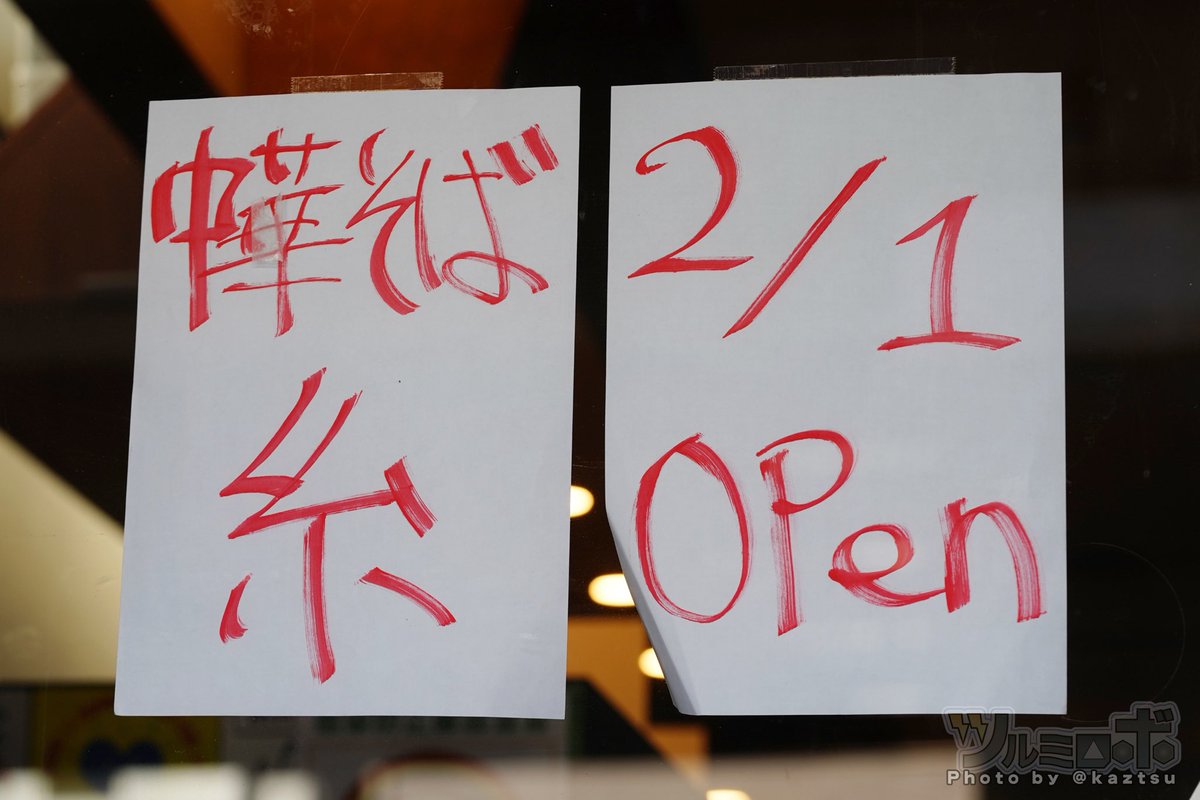 中華そば
糸
2/1
OPen
ツルミロボ
Photo by @kaztsu